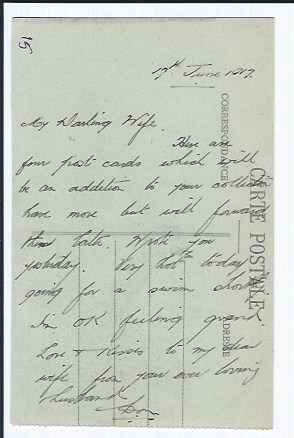 15
17th June 1917.
My Darling Wife.
Here are
four post cards which will
be an addition to your collection
have more but will forward
them later. Wrote you
yesterday. Very hot today
going for a swim shortly.
Im OK feeling grand.
Love & Kisses to my dear
wife from your ever loving
husband
CARTE POSTALE
CORRESPONDANCE
ADRESSE